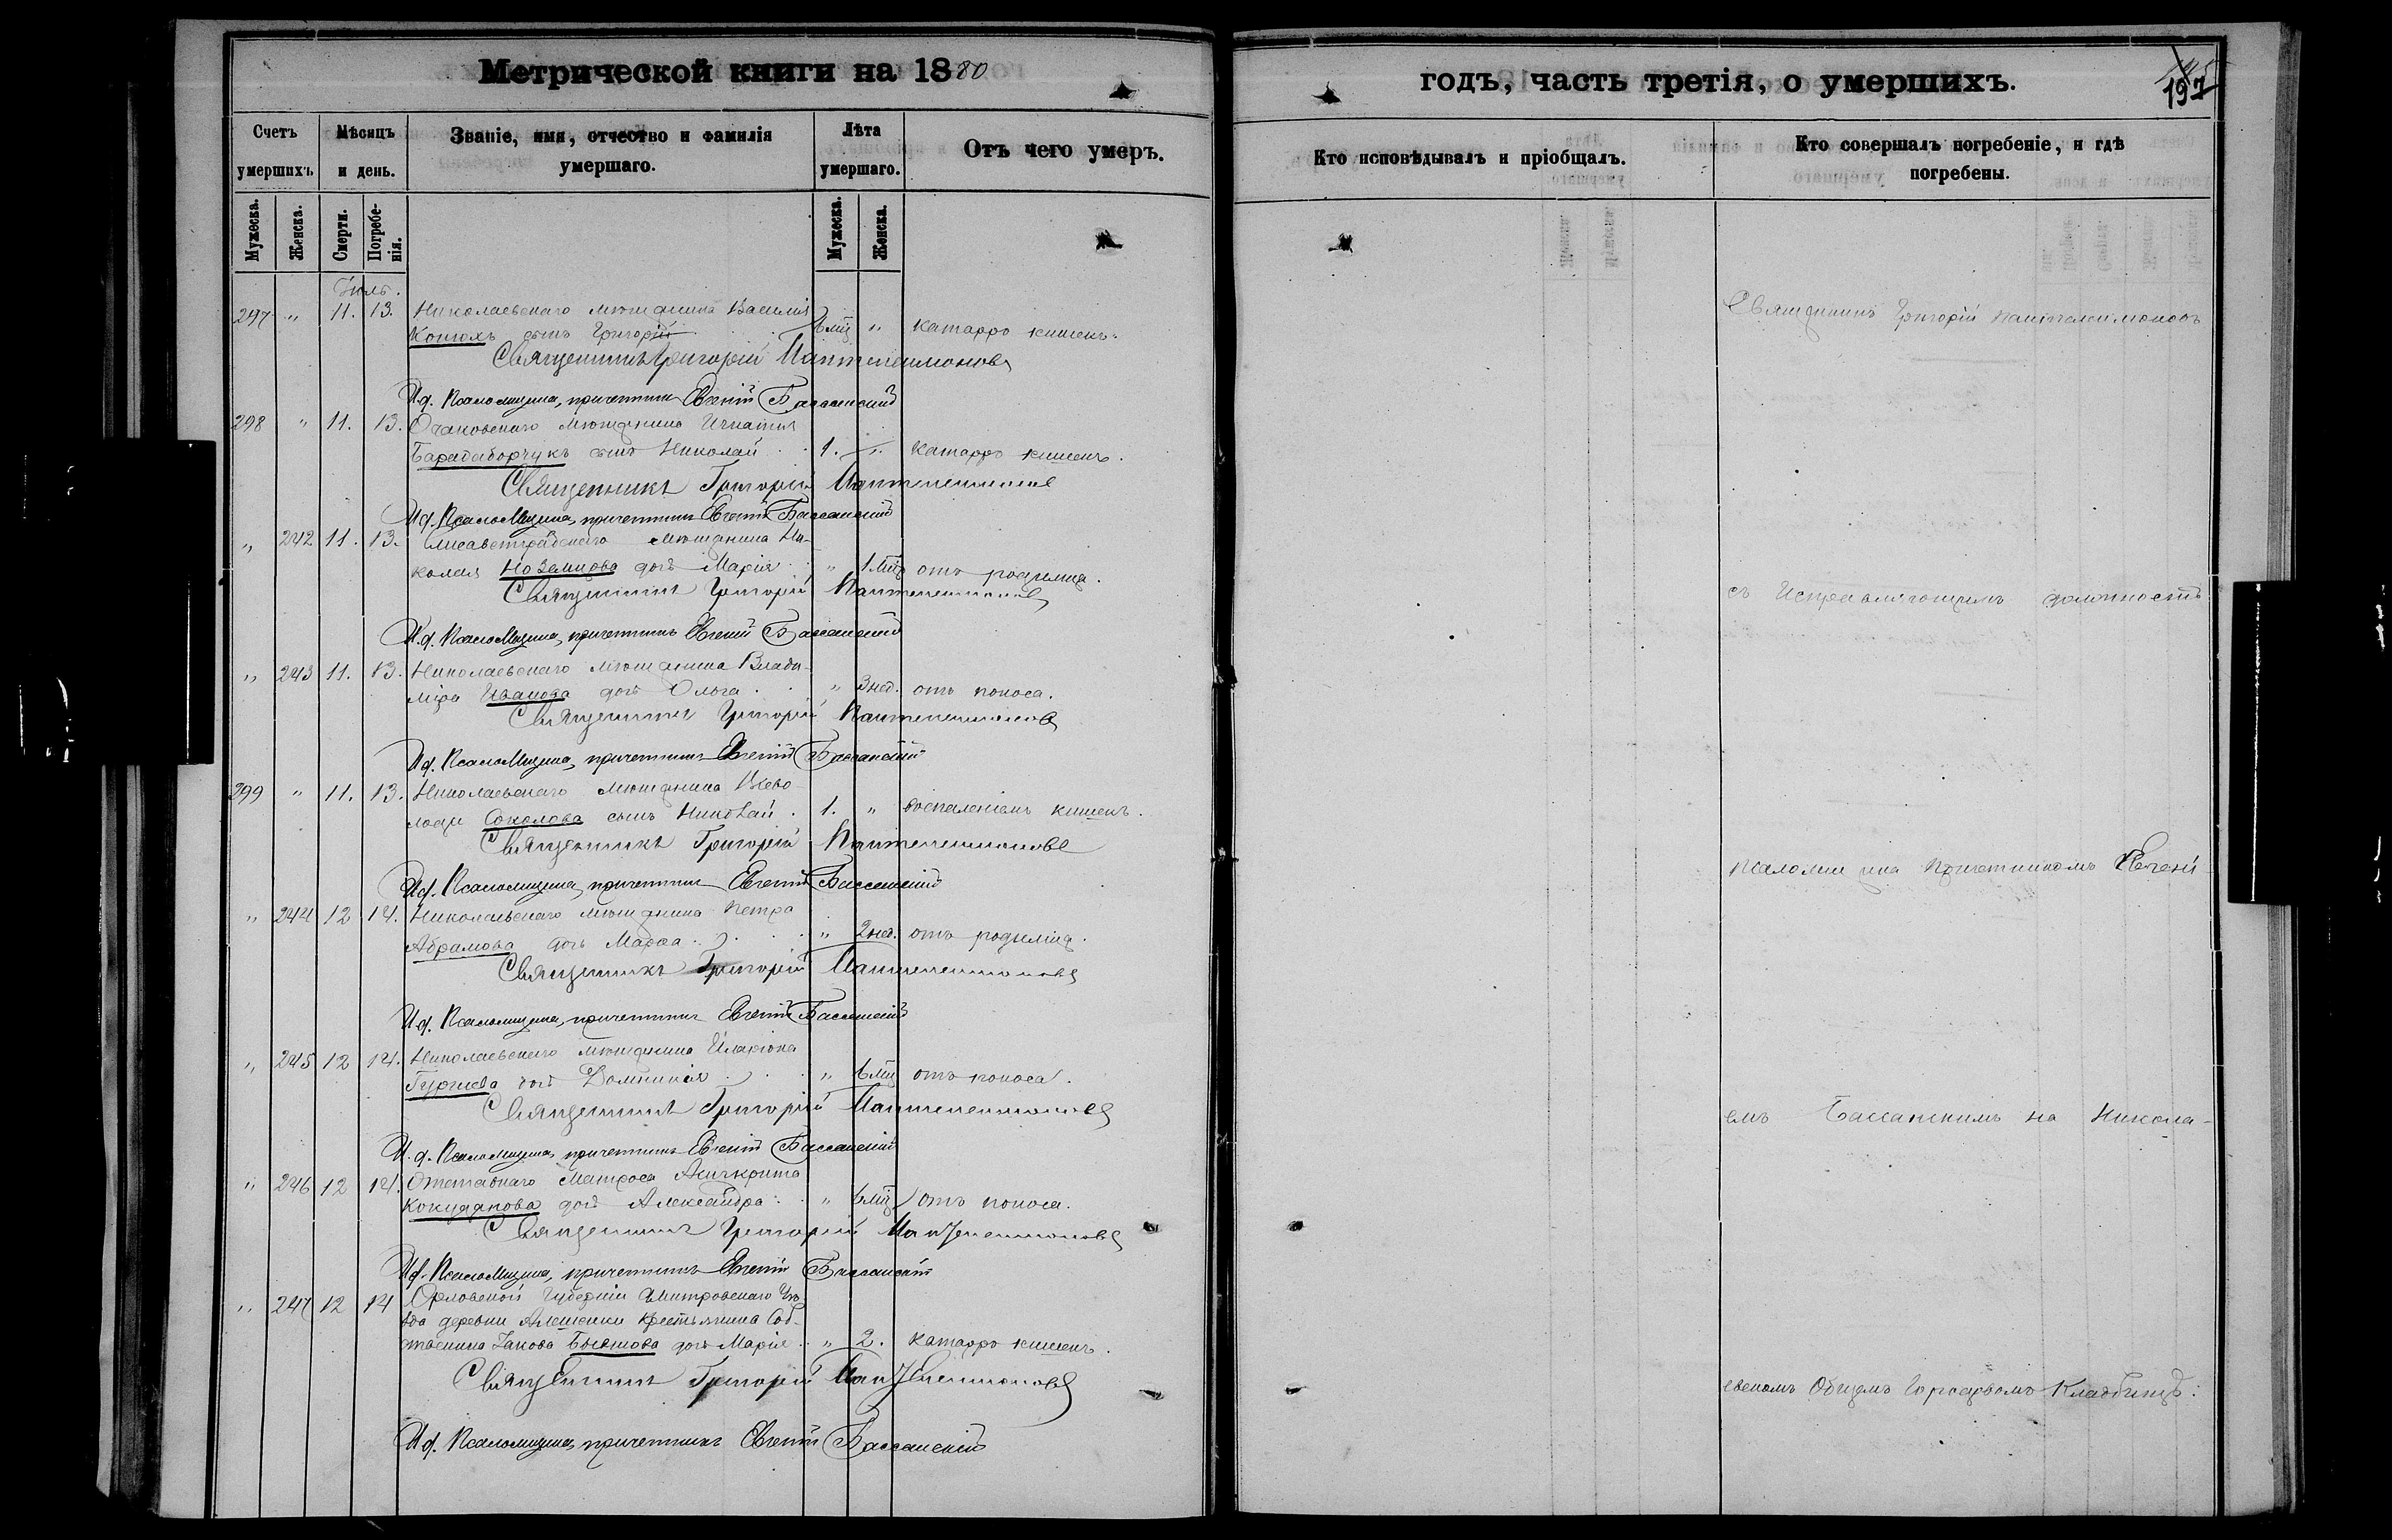 Метрической книги на 1880
годъ, часть третія, о умершихъ.
197
Счетъ умершихъ
Мѣсяцъ и день.
Званіе, имя, отчество и фамилія умершаго.
Лѣта умершаго.
Отъ чего умеръ.
Кто исповѣдывалъ и пріобщалъ.
Кто совершалъ погребеніе, и гдѣ погребены.
Мужеска. Женска. Смерти. Погребенія. Мужеска. Женска.
Іюль.
297 " 11. 13. Николаевскаго мѣщанина Василія
Конюхъ сынъ Григорій 6 мц " катарро кишекъ.
Священникъ Григорій Пантелеимоновъ
И.д. Псаломщика, причетникъ Евгеній Бассанскій
298 " 11. 13. Очаковскаго мѣщанина Игнатія
Барабаборчукъ сынъ Николай 1. " катарро кишекъ.
Священникъ Григорій Пантелеимоновъ
И.д. Псаломщика, причетникъ Евгеній Бассанскій
" 242 11. 13. Елисаветградскаго мѣщанина Ни-
колая Ноземцова дочь Марія " 1 мц отъ родимца.
Священникъ Григорій Пантелеимоновъ
И.д. Псаломщика, причетникъ Евгеній Бассанскій
" 243 11. 13. Николаевскаго мѣщанина Влади-
міра Иванова дочь Ольга " 3 нед. отъ поноса.
Священникъ Григорій Пантелеимоновъ
И.д. Псаломщика, причетникъ Евгеній Бассанскій
299 " 11. 13. Николаевскаго мѣщанина Всево-
лода Соколова сынъ Николай 1. " воспаленіемъ кишекъ.
Священникъ Григорій Пантелеимоновъ
И.д. Псаломщика, причетникъ Евгеній Бассанскій
" 244 12 14. Николаевскаго мѣщанина Петра
Абрамова дочь Марѳа " 2 нед. отъ родимца.
Священникъ Григорій Пантелеимоновъ
И.д. Псаломщика, причетникъ Евгеній Бассанскій
" 245 12 14. Николаевскаго мѣщанина Иларіона
Гуржева дочь Домникія " 6 мц отъ поноса.
Священникъ Григорій Пантелеимоновъ
И.д. Псаломщика, причетникъ Евгеній Бассанскій
" 246 12 14. Отставнаго Матроса
дочь Александра " 6 мц отъ поноса.
Священникъ Григорій Пантелеимоновъ
И.д. Псаломщика, причетникъ Евгеній Бассанскій
" 247 12 14 Орловской Губерніи Дмитровскаго Уѣ-
зда деревни Алешенки крестьянина Соб-
ственника Іакова дочь Марія " 2. катарро кишекъ.
Священникъ Григорій Пантелеимоновъ
И.д. Псаломщика, причетникъ Евгеній Бассанскій
Священникъ Григорій Пантелеимоновъ
съ Исправляющимъ должность
псаломщика Причетникомъ Евгені-
емъ Бассанскимъ на Никола-
евскомъ Общемъ Городскомъ Кладбищѣ.